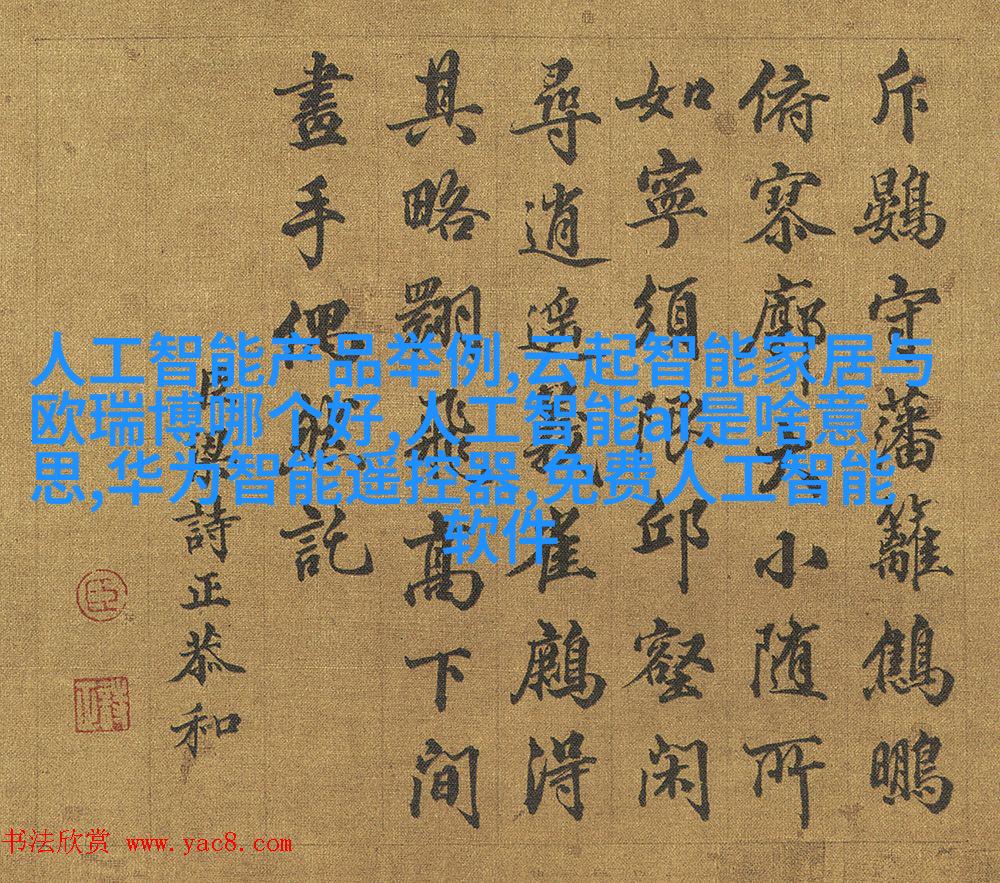 斥鷃守藩籬鷦鵬
俯寥廓大小随所
如寧須限邱壑閑
尋逍遥雀得
其略翔飛高下間
畫手偶然託
臣梁詩正恭和
臣
人工智能产品举例,云起智能家居与
欧瑞博哪个好,人工智能ai是啥意
思,华为智能遥控器,免费人工智能
软件
书法欣赏 www.yac8.com